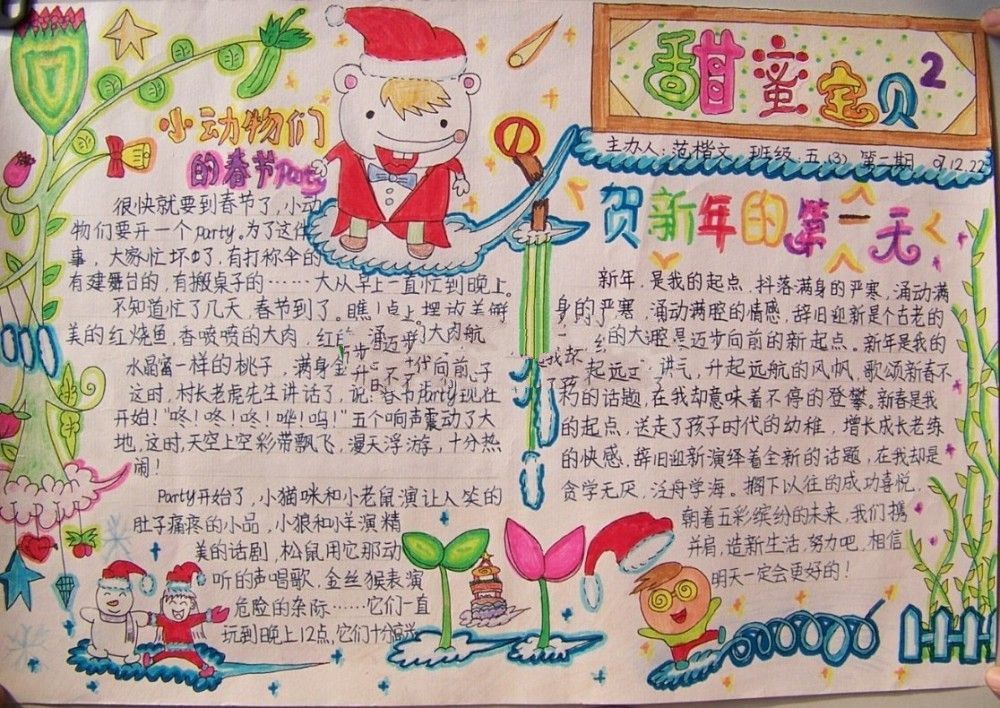 甜蜜宝贝2
主办人:范楷文 班级:五(3) 第二期 07.12.22
小动物们
的春节Party
很快就要到春节了,小动
物们要开一个party。为了这件
事,大家忙坏了,有打称伞的
有建舞台的,有搬桌子的……大从早上一直忙到晚上。
不知道忙了几天,春节到了。瞧!点上摆放美鲜
美的红烧鱼,香喷喷的大肉,
水晶窗一样的桃子,满身金
这时,村长老虎先生讲话了,说:春节Party现在
开始!"咚!咚!咚!哗!呜!"五个响声震动了大
地,这时,天空上空彩带飘飞,漫天浮游,十分热
闹!
Party开始了,小猫咪和小老鼠演让人笑的
肚子痛疼的小品,小狼和小羊演精
美的话剧,松鼠用它那动
听的声唱歌,金丝猴表演
危险的杂际……它们一直
玩到晚上12点,它们十分高兴
贺新年的第一天
新年,是我的起点,抖落满身的严寒,涌动满
身的严寒,涌动满腔的情感,辞旧迎新是个古老的
的大腔是迈步向前的新起点。新年是我的
起远讲气,升起远航的风帆,歌颂新春不
朽的话题,在我却意味着不停的登攀。新春是我
的起点,送走了孩子时代的幼稚,增长成长老练
的快感,辞旧迎新演绎着全新的话题,在我却是
贪学无厌,泛舟学海。搁下以往的成功喜悦,
朝着五彩缤纷的未来,我们携
并肩,造新生活,努力吧,相信
明天一定会更好的!